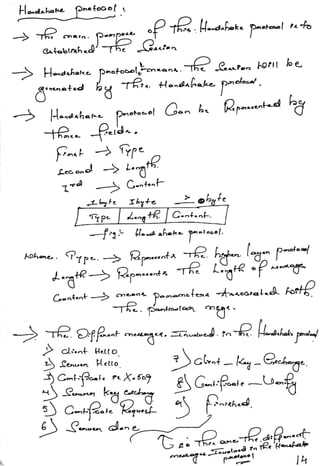 Handshake protocol:
→ The main purpose of this Handshake protocol is to
established The Session
→ Handshake protocol, means The Session will be
generated by This Handshake protocol.
→ Handshake protocol Can be Represented by
Three fields.
First → Type
Second → Length.
3rd → Content
1byte 3byte > 0byte
Type Length Content.
fig:- Handshake protocol.
Where. Type → Represents The higher layer protocol
Length → Represents The Length of message
Content → means parameters Associated with.
The. particular msge.
→ The. Different messages. Involved. in the Handshake protocol
1) Client Hello.
2) Server Hello.
3) Certificate X.509
4) Server Key Exchang
5) Certificate Request
6) Server done
7) Client - Key - Exchange.
8) Certificate - Verify
9) Finished.
This are The different
messages Involved in the Handshake
protocol
14